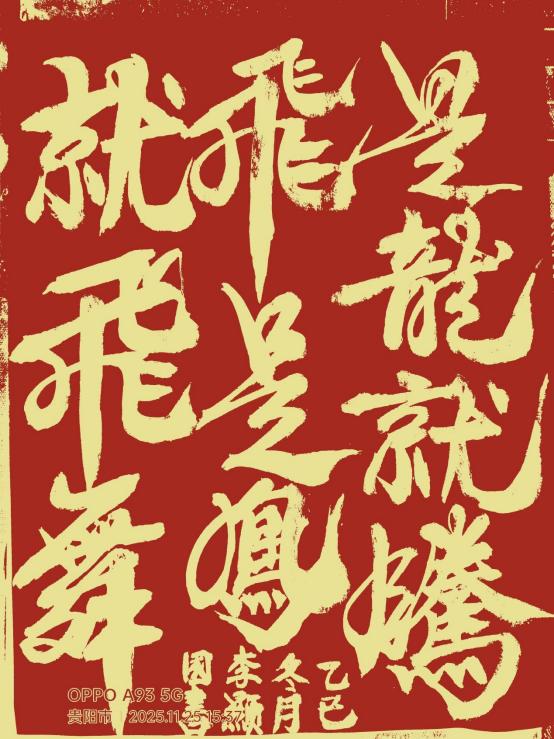 是龍就騰
飛是鳳
就飛舞
乙巳
冬月
李灝
國書
OPPO A93 5G
贵阳市 | 2025.11.25 15:37